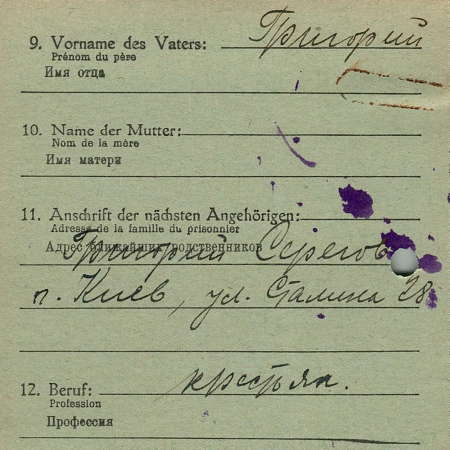 9. Vorname des Vaters: Григорий
Prénom du père
Имя отца
10. Name der Mutter:
Nom de la mère
Имя матери
11. Anschrift der nächsten Angehörigen:
Adresse de la famille du prisonnier
Адрес ближайших родственников
Григорий Серегов
г. Киев, ул. Сталина 28
12. Beruf: крестьян.
Profession
Профессия